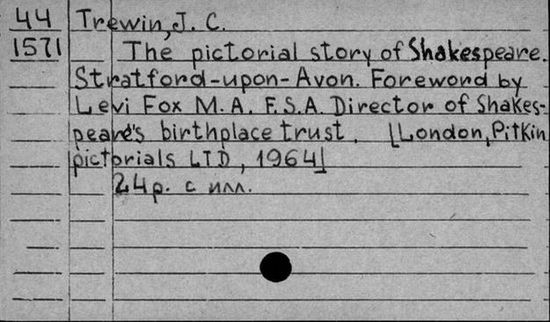 44 Trewin, J. C.
1571 The pictorial story of Shakespeare.
Stratford-upon-Avon. Foreword by
Levi Fox M.A. F.S.A. Director of Shakes-
peare's birthplace trust. [London, Pitkin
pictorials LTD, 1964]
24p. с илл.